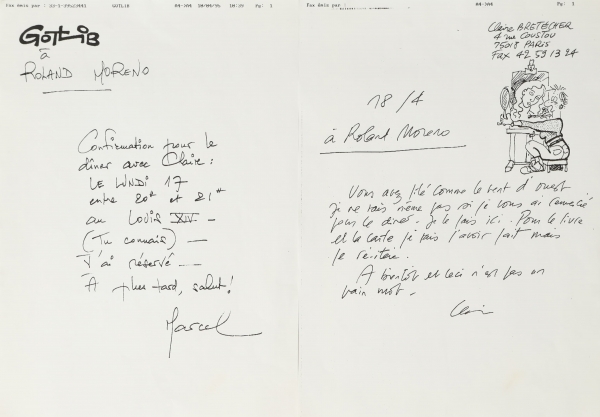 Fax émis par :
GOTLIB
04-JAN
Pg: 1
GOTLIB
à
ROLAND MORENO
Confirmation pour le
dîner avec Claire :
LE LUNDI 17
entre 20H et 21H
au LOUIS XIV —
(Tu connais) —
J'ai réservé —
A plus tard, salut!
Marcel
Fax émis par :
04-JAN
Pg: 1
Claire BRETÉCHER
4 rue COUSTOU
75018 PARIS
Fax 42 59 13 24
18/4
à Roland Moreno
Vous avez filé comme le vent d'ouest
je ne sais même pas si je vous ai remercié
pour le dîner. je le fais ici. Pour le livre
et la carte je sais l'avoir fait mais
je réitère.
A bientôt et ceci n'est pas un
vain mot.
Claire